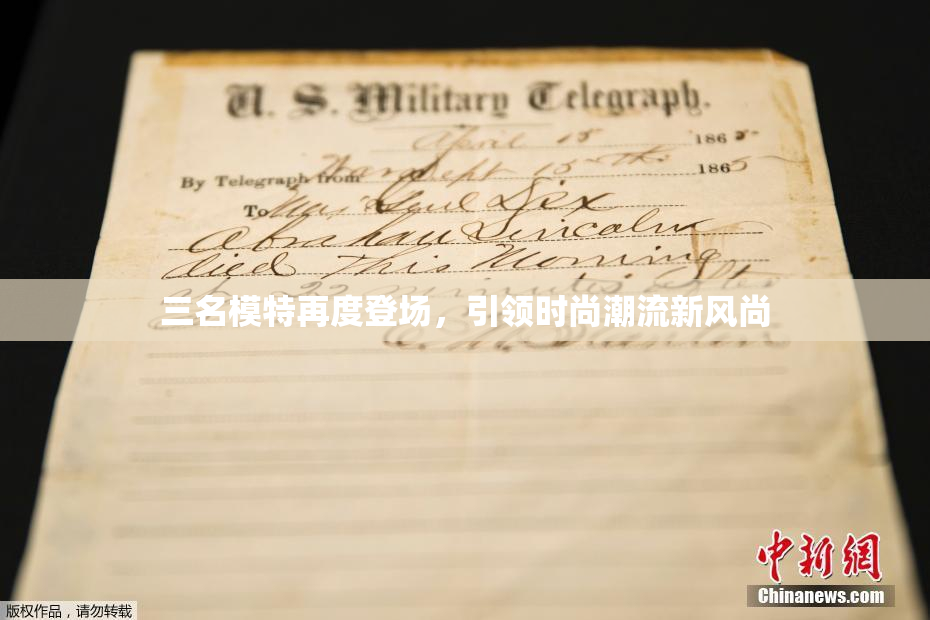 U. S. Military Telegraph.
April 15 1865
By Telegraph from War Dept 15th 1865
To Maj Genl Dix
Abraham Lincoln
died This Morning
at 22 minutes after
三名模特再度登场，引领时尚潮流新风尚
E. M. Stanton
中新网
Chinanews.com
版权作品，请勿转载